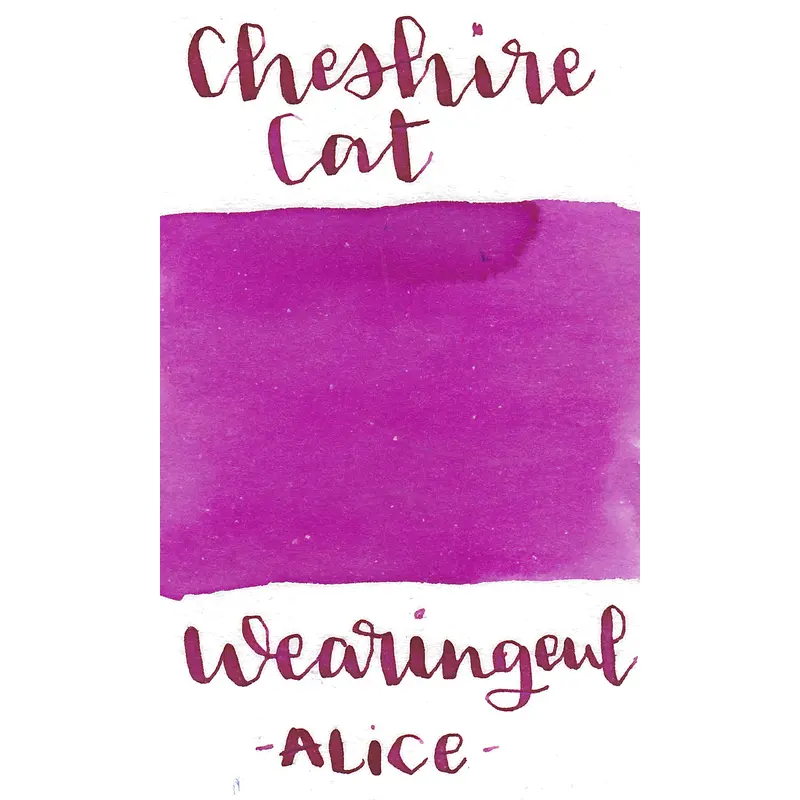 Cheshire
Cat
Wearingeul
-ALiCE-